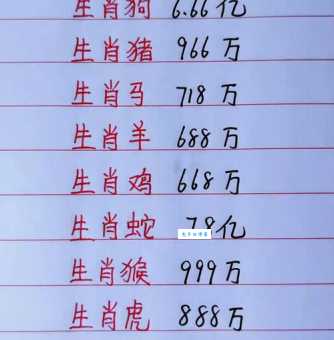 生肖狗 6.66亿
生肖猪 966万
生肖马 718万
生肖羊 688万
生肖鸡 668万
生肖蛇 7.8亿
生肖猴 999万
生肖虎 888万